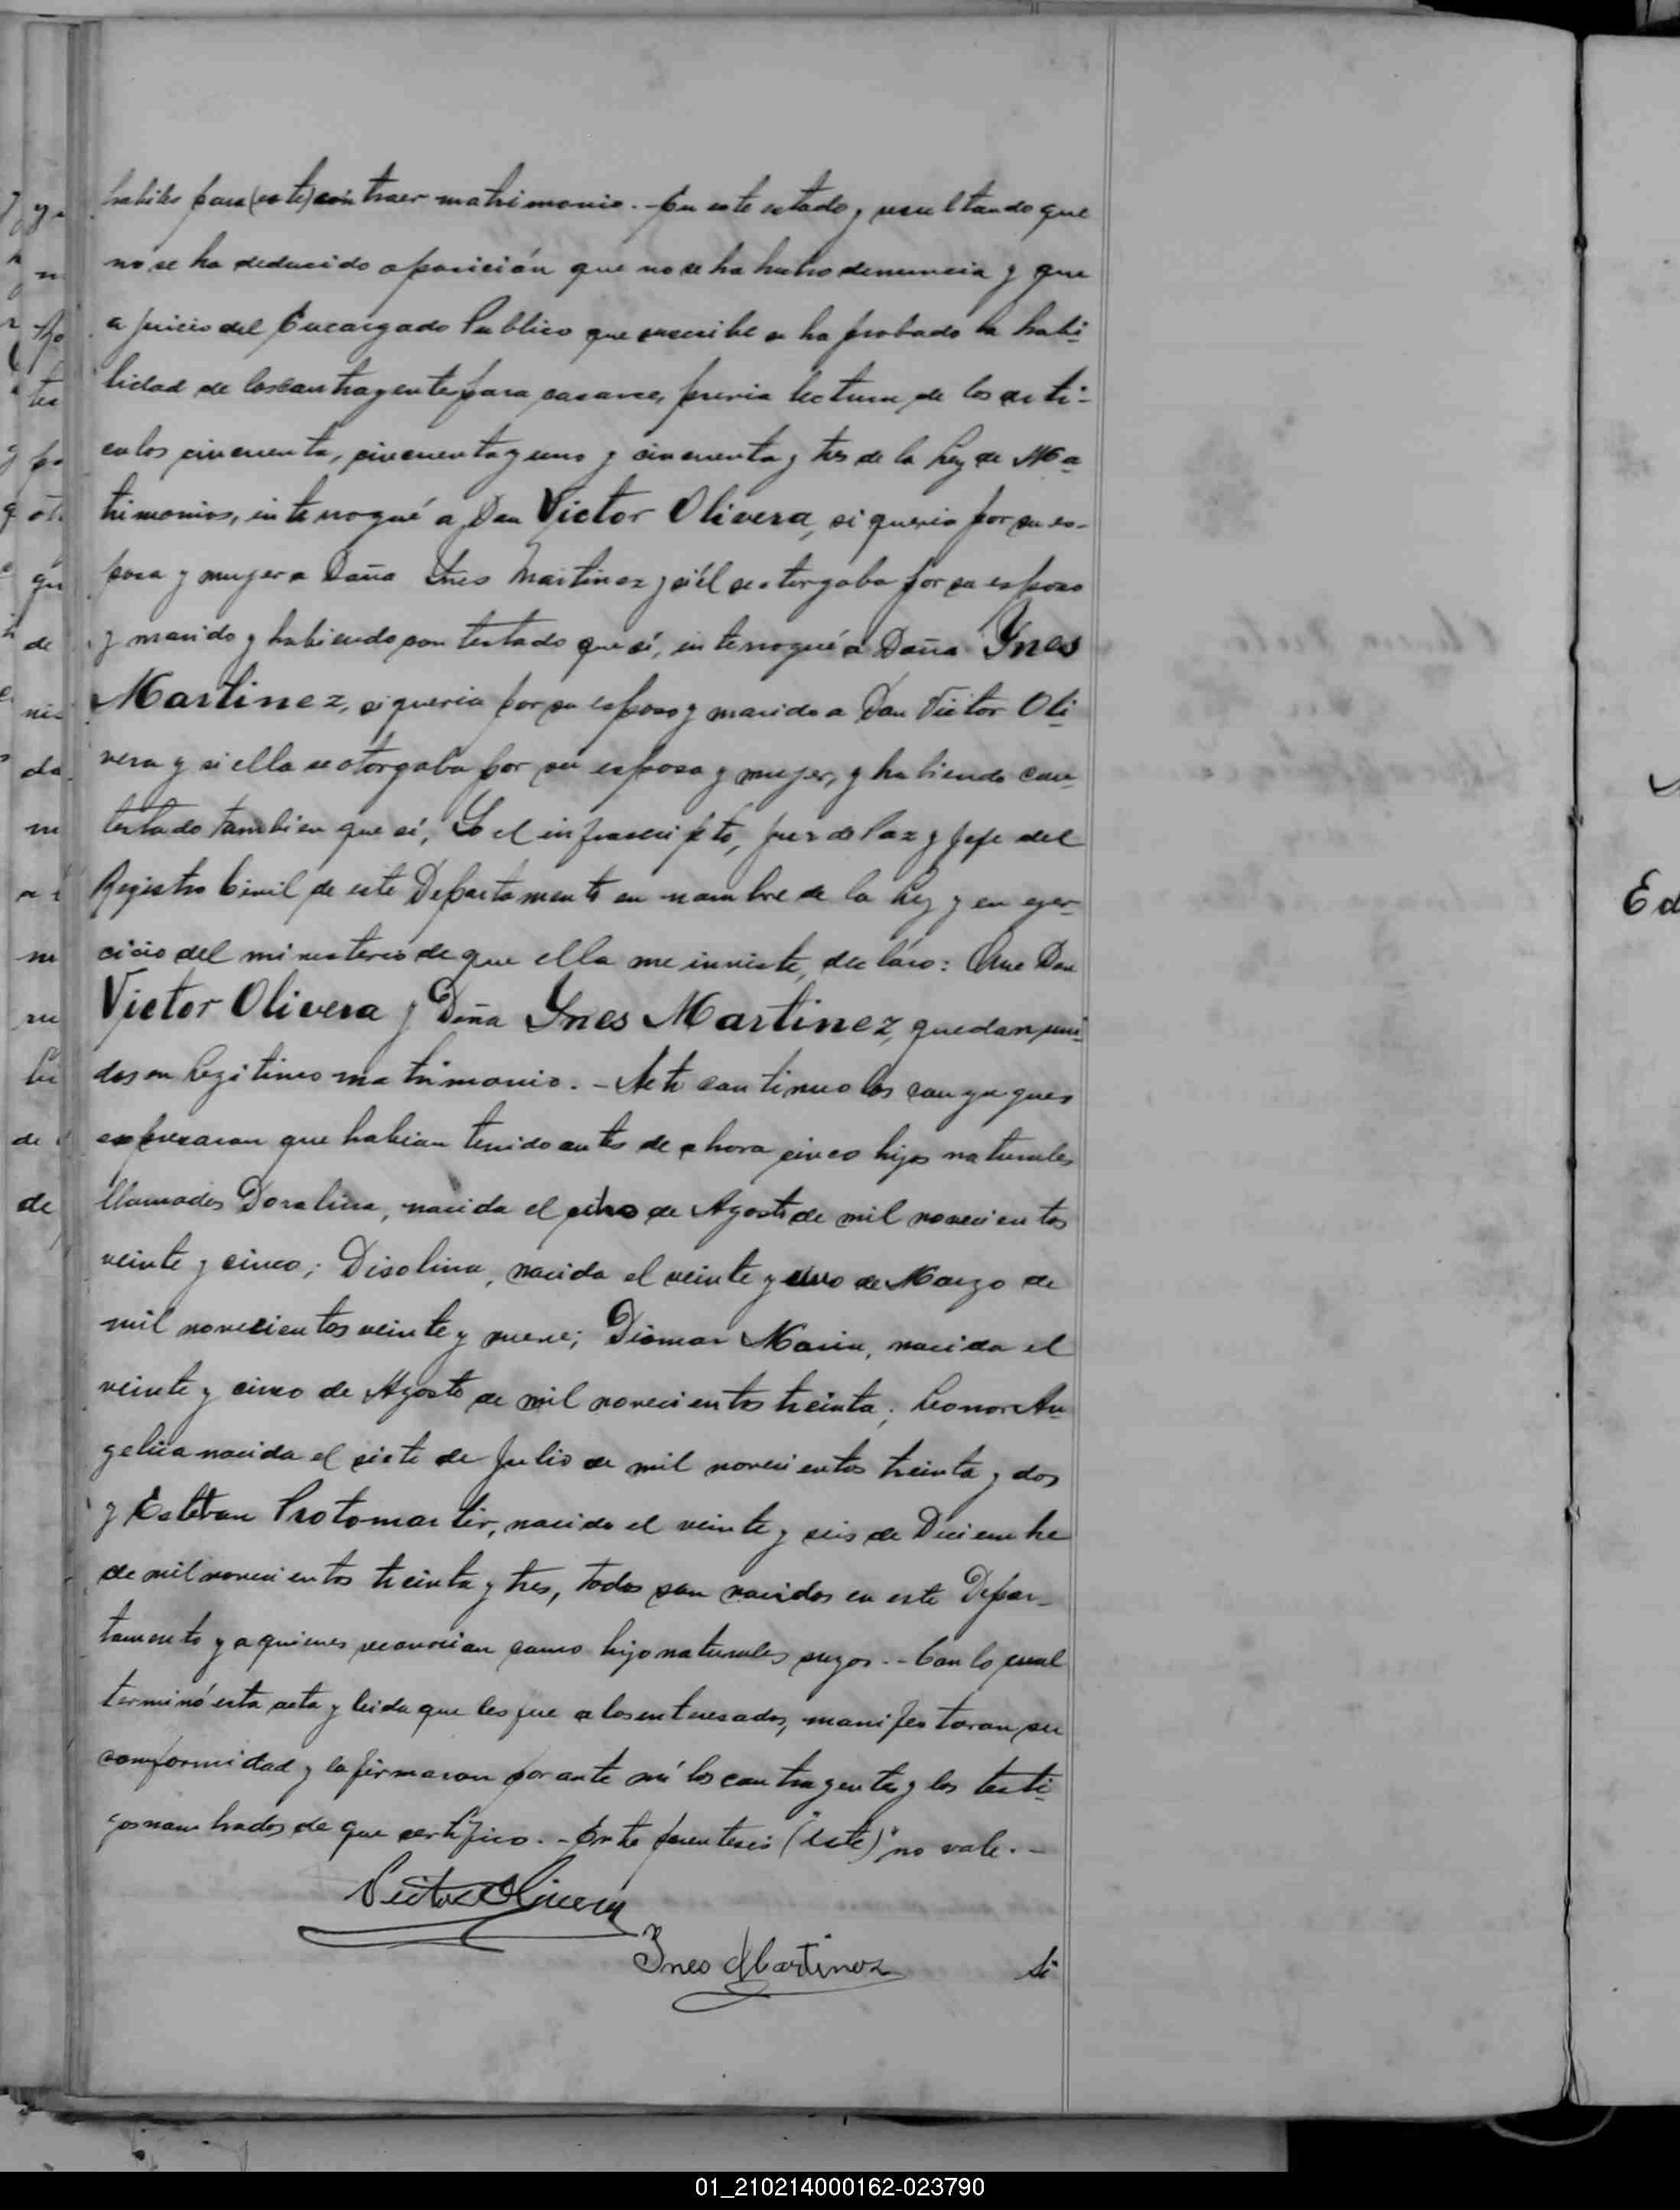 habiles para (este) contraer matrimonio.- En este estado, y resultando que
no se ha deducido oposición que no se ha hecho denuncia y que
a juicio del Encargado Publico que suscribe se ha probado la habi-
lidad de los contrayentes para casarse, previa lectura de los artí-
culos cincuenta, cincuenta y uno y cincuenta y tres de la Ley de Ma-
trimonios, interrogué a Don Victor Olivera, si queria por su es-
posa y mujer a Doña Ynes Martinez y si él se otorgaba por su esposo
y marido y habiendo contestado que sí, interrogué a Doña Ynes
Martinez, si queria por su esposo y marido a Don Victor Oli-
vera y si ella se otorgaba por su esposa y mujer, y habiendo con-
testado tambien que sí, Yo el infrascripto, Juez de Paz y Jefe del
Registro Civil de este Departamento en nombre de la Ley y en ejer-
cicio del ministerio de que ella me inviste, declaro: Que Don
Victor Olivera y Doña Ynes Martinez, quedan uni-
dos en legitimo matrimonio.- Acto continuo los conyugues
expresaron que habian tenido antes de ahora cinco hijos naturales
llamados Doralina, nacida el de Agosto de mil novecientos
veinte y cinco; Disolina, nacida el veinte y uno de Marzo de
mil novecientos veinte y nueve; Diomar Maria, nacida el
veinte y cinco de Agosto de mil novecientos treinta; Leonor An-
gelica nacida el siete de Julio de mil novecientos treinta y dos
y Esteban Protomartir, nacido el veinte y seis de Diciembre
de mil novecientos treinta y tres, todos son nacidos en este Depar-
tamento y a quienes reconocian como hijo naturales suyos.- Con lo cual
terminó esta acta y leida que les fue a los enteresados, manifestaron su
conformidad y la firmaron por ante mí los contrayentes y los testi-
gos nombrados de que certifico.- Entre parentesis (este)" no vale.-
Victor Olivera
Ynes Martinez
Si
Ed
01_210214000162-023790